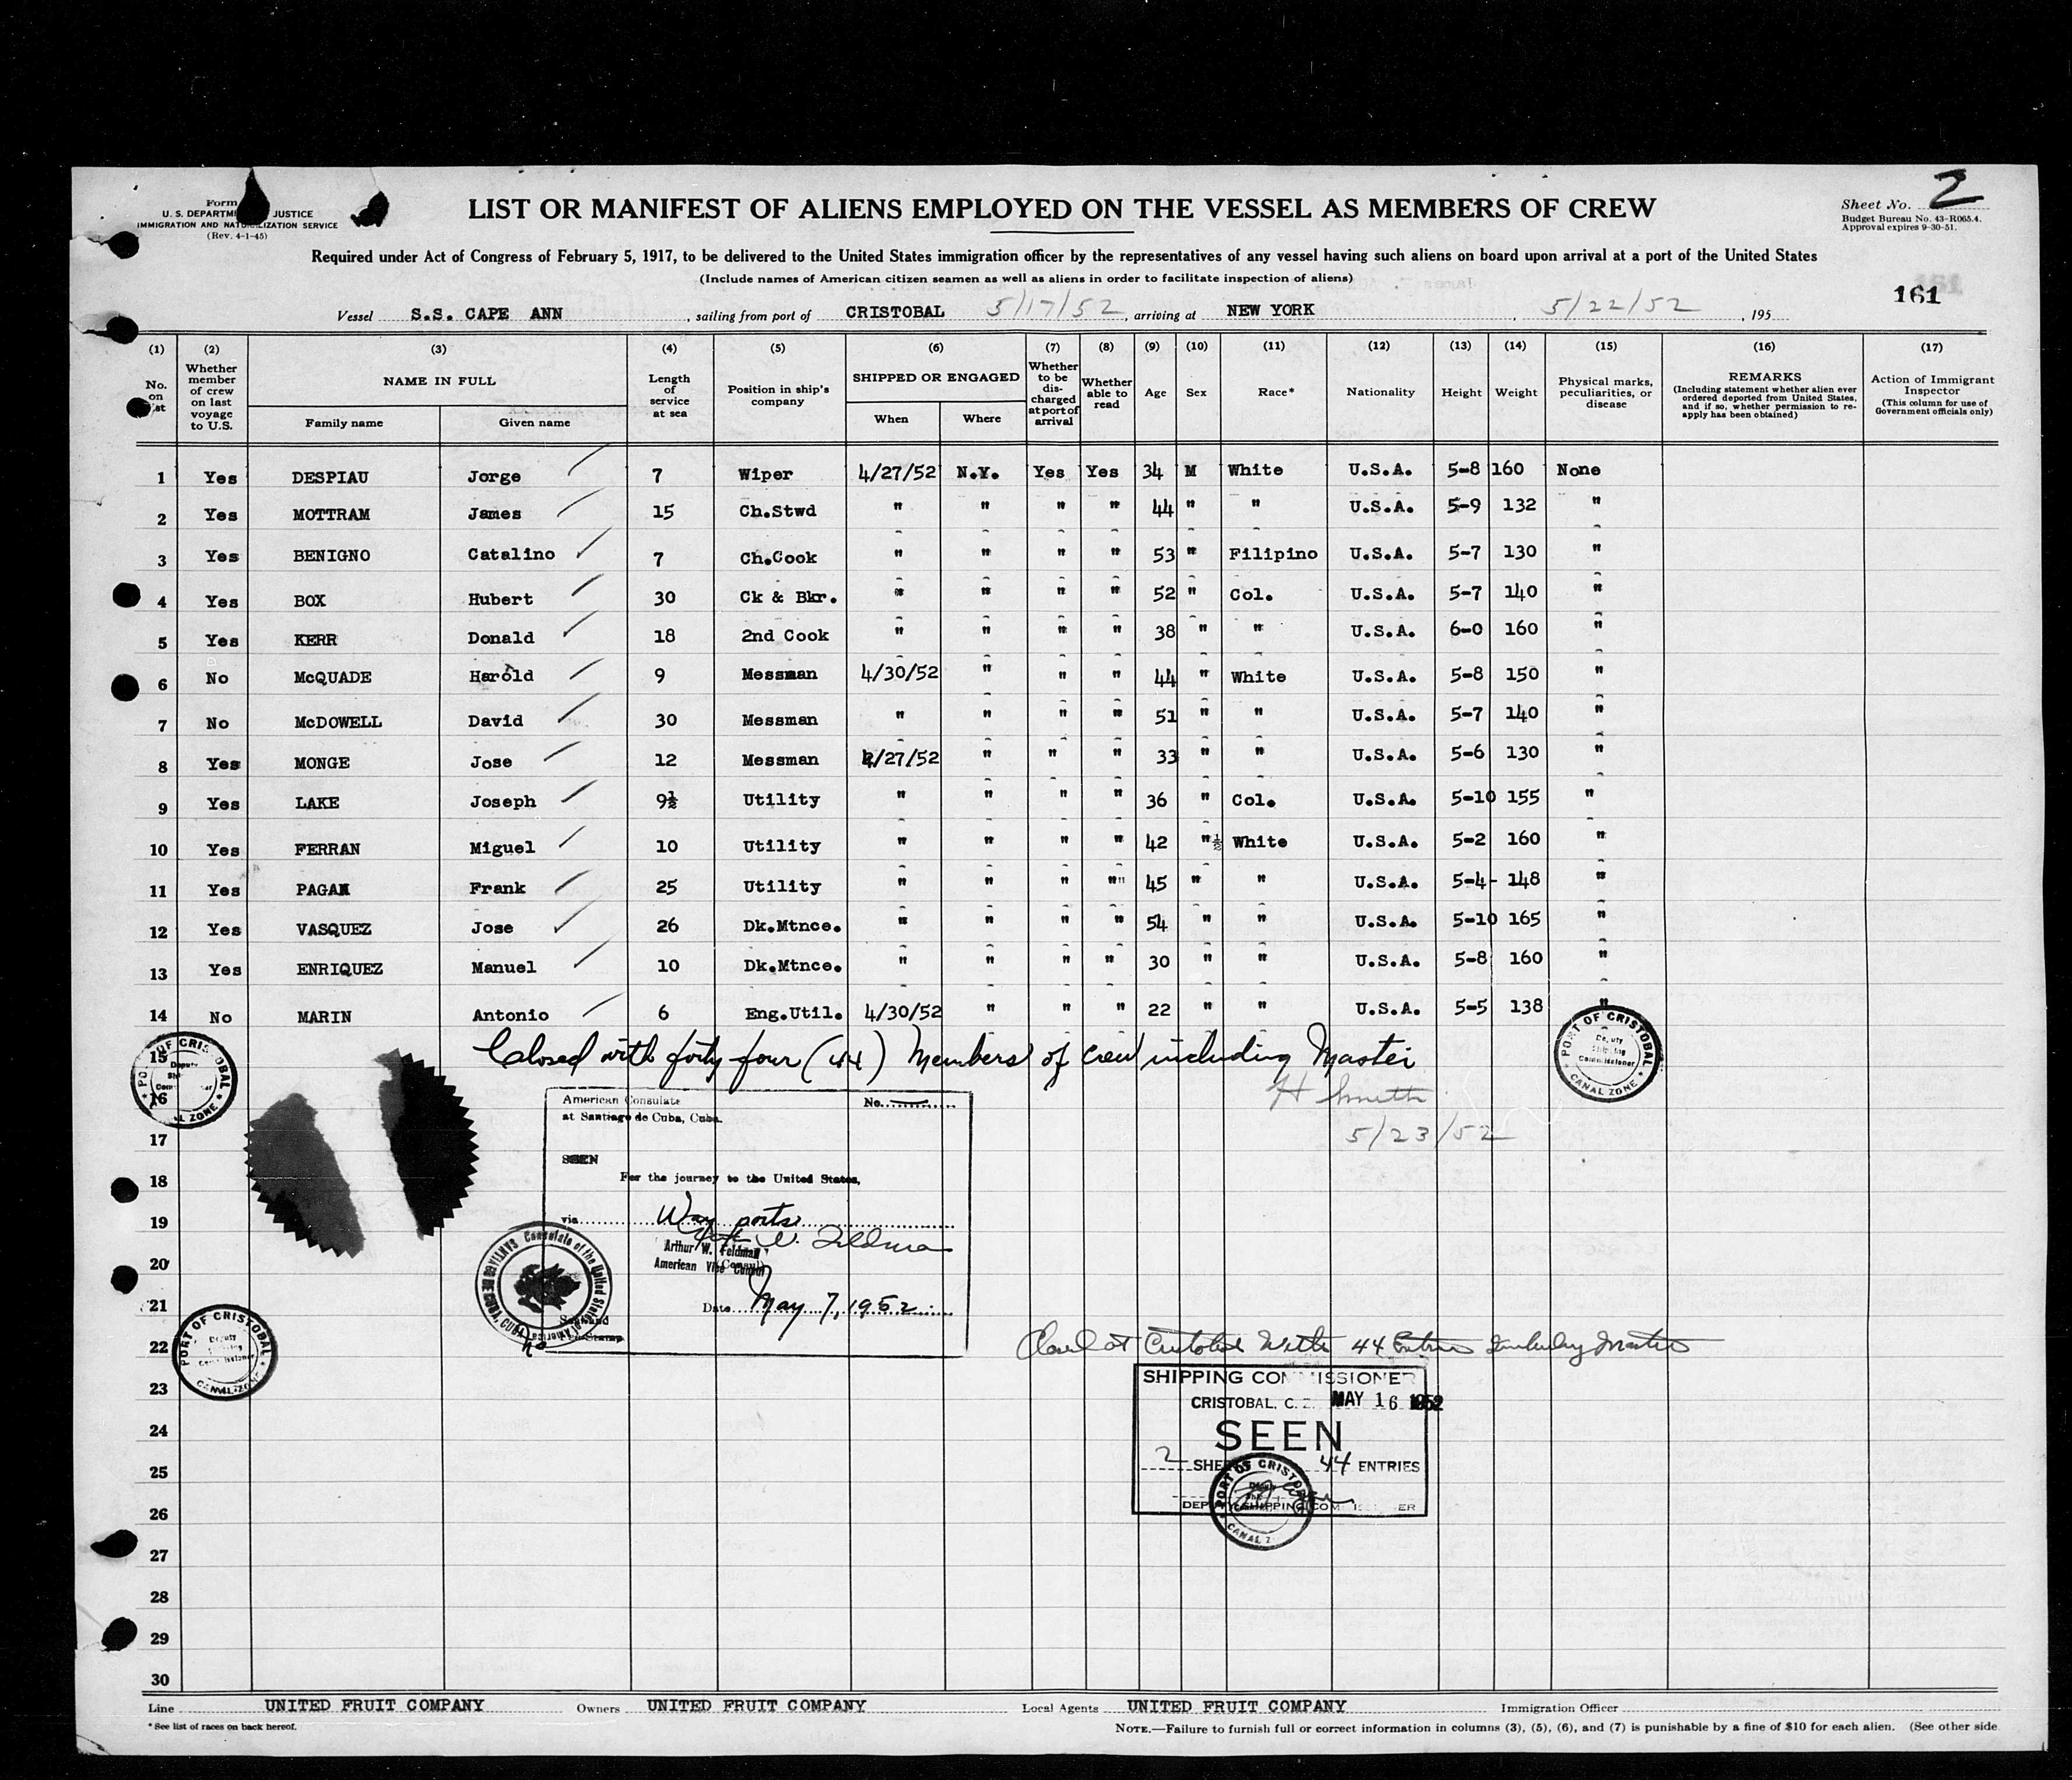 Form
U. S. DEPARTM JUSTICE
IMMIGRATION AND NATURALIZATION SERVICE
(Rev. 4-1-45)
LIST OR MANIFEST OF ALIENS EMPLOYED ON THE VESSEL AS MEMBERS OF CREW
Sheet No. 2
Budget Bureau No. 43-R065.4.
Approval expires 9-30-51.
Required under Act of Congress of February 5, 1917, to be delivered to the United States immigration officer by the representatives of any vessel having such aliens on board upon arrival at a port of the United States
(Include names of American citizen seamen as well as aliens in order to facilitate inspection of aliens)
161
Vessel S.S. CAPE ANN, sailing from port of CRISTOBAL 5/17/52, arriving at NEW YORK, 5/22/52, 195
(1) (2) (3) (4) (5) (6) (7) (8) (9) (10) (11) (12) (13) (14) (15) (16) (17)
No. on list
Whether member of crew on last voyage to U.S.
NAME IN FULL
Family name
Given name
Length of service at sea
Position in ship's company
SHIPPED OR ENGAGED
When
Where
Whether to be discharged at port of arrival
Whether able to read
Age
Sex
Race*
Nationality
Height
Weight
Physical marks, peculiarities, or disease
REMARKS
(Including statement whether alien ever ordered deported from United States, and if so, whether permission to re-apply has been obtained)
Action of Immigrant Inspector
(This column for use of Government officials only)
1 Yes DESPIAU Jorge 7 Wiper 4/27/52 N.Y. Yes Yes 34 M White U.S.A. 5-8 160 None
2 Yes MOTTRAM James 15 Ch.Stwd " " " " 44 " " U.S.A. 5-9 132 "
3 Yes BENIGNO Catalino 7 Ch.Cook " " " " 53 " Filipino U.S.A. 5-7 130 "
4 Yes BOX Hubert 30 Ck & Bkr. " " " " 52 " Col. U.S.A. 5-7 140 "
5 Yes KERR Donald 18 2nd Cook " " " " 38 " " U.S.A. 6-0 160 "
6 No McQUADE Harold 9 Messman 4/30/52 " " " 44 " White U.S.A. 5-8 150 "
7 No McDOWELL David 30 Messman " " " " 51 " " U.S.A. 5-7 140 "
8 Yes MONGE Jose 12 Messman 4/27/52 " " " 33 " " U.S.A. 5-6 130 "
9 Yes LAKE Joseph 9½ Utility " " " " 36 " Col. U.S.A. 5-10 155 "
10 Yes FERRAN Miguel 10 Utility " " " " 42 " White U.S.A. 5-2 160 "
11 Yes PAGAN Frank 25 Utility " " " " 45 " " U.S.A. 5-4- 148 "
12 Yes VASQUEZ Jose 26 Dk.Mtnce. " " " " 54 " " U.S.A. 5-10 165 "
13 Yes ENRIQUEZ Manuel 10 Dk.Mtnce. " " " " 30 " " U.S.A. 5-8 160 "
14 No MARIN Antonio 6 Eng.Util. 4/30/52 " " " 22 " " U.S.A. 5-5 138 "
15
Closed with forty-four (44) Members of crew including Master
PORT OF CRISTOBAL
Deputy
Shipping
Commissioner
CANAL ZONE
16
H Smith
5/23/52
17
18
19
20
21
22
23
24
25
26
27
28
29
30
American Consulate No.
at Santiago de Cuba, Cuba.
SEEN
For the journey to the United States,
via Way ports
Arthur W. Feldman
American Vice Consul
Date May 7, 1952
Consulate of the United States of America
SANTIAGO DE CUBA, CUBA
PORT OF CRISTOBAL
Deputy
Shipping
Commissioner
CANAL ZONE
Closed at Cristobal with 44 Entries Including Master
SHIPPING COMMISSIONER
CRISTOBAL, C. Z. MAY 16 1952
SEEN
2 SHEETS 44 ENTRIES
DEPUTY SHIPPING COMMISSIONER
PORT OF CRISTOBAL
CANAL Z
Line UNITED FRUIT COMPANY Owners UNITED FRUIT COMPANY Local Agents UNITED FRUIT COMPANY Immigration Officer
* See list of races on back hereof.
NOTE.—Failure to furnish full or correct information in columns (3), (5), (6), and (7) is punishable by a fine of $10 for each alien. (See other side